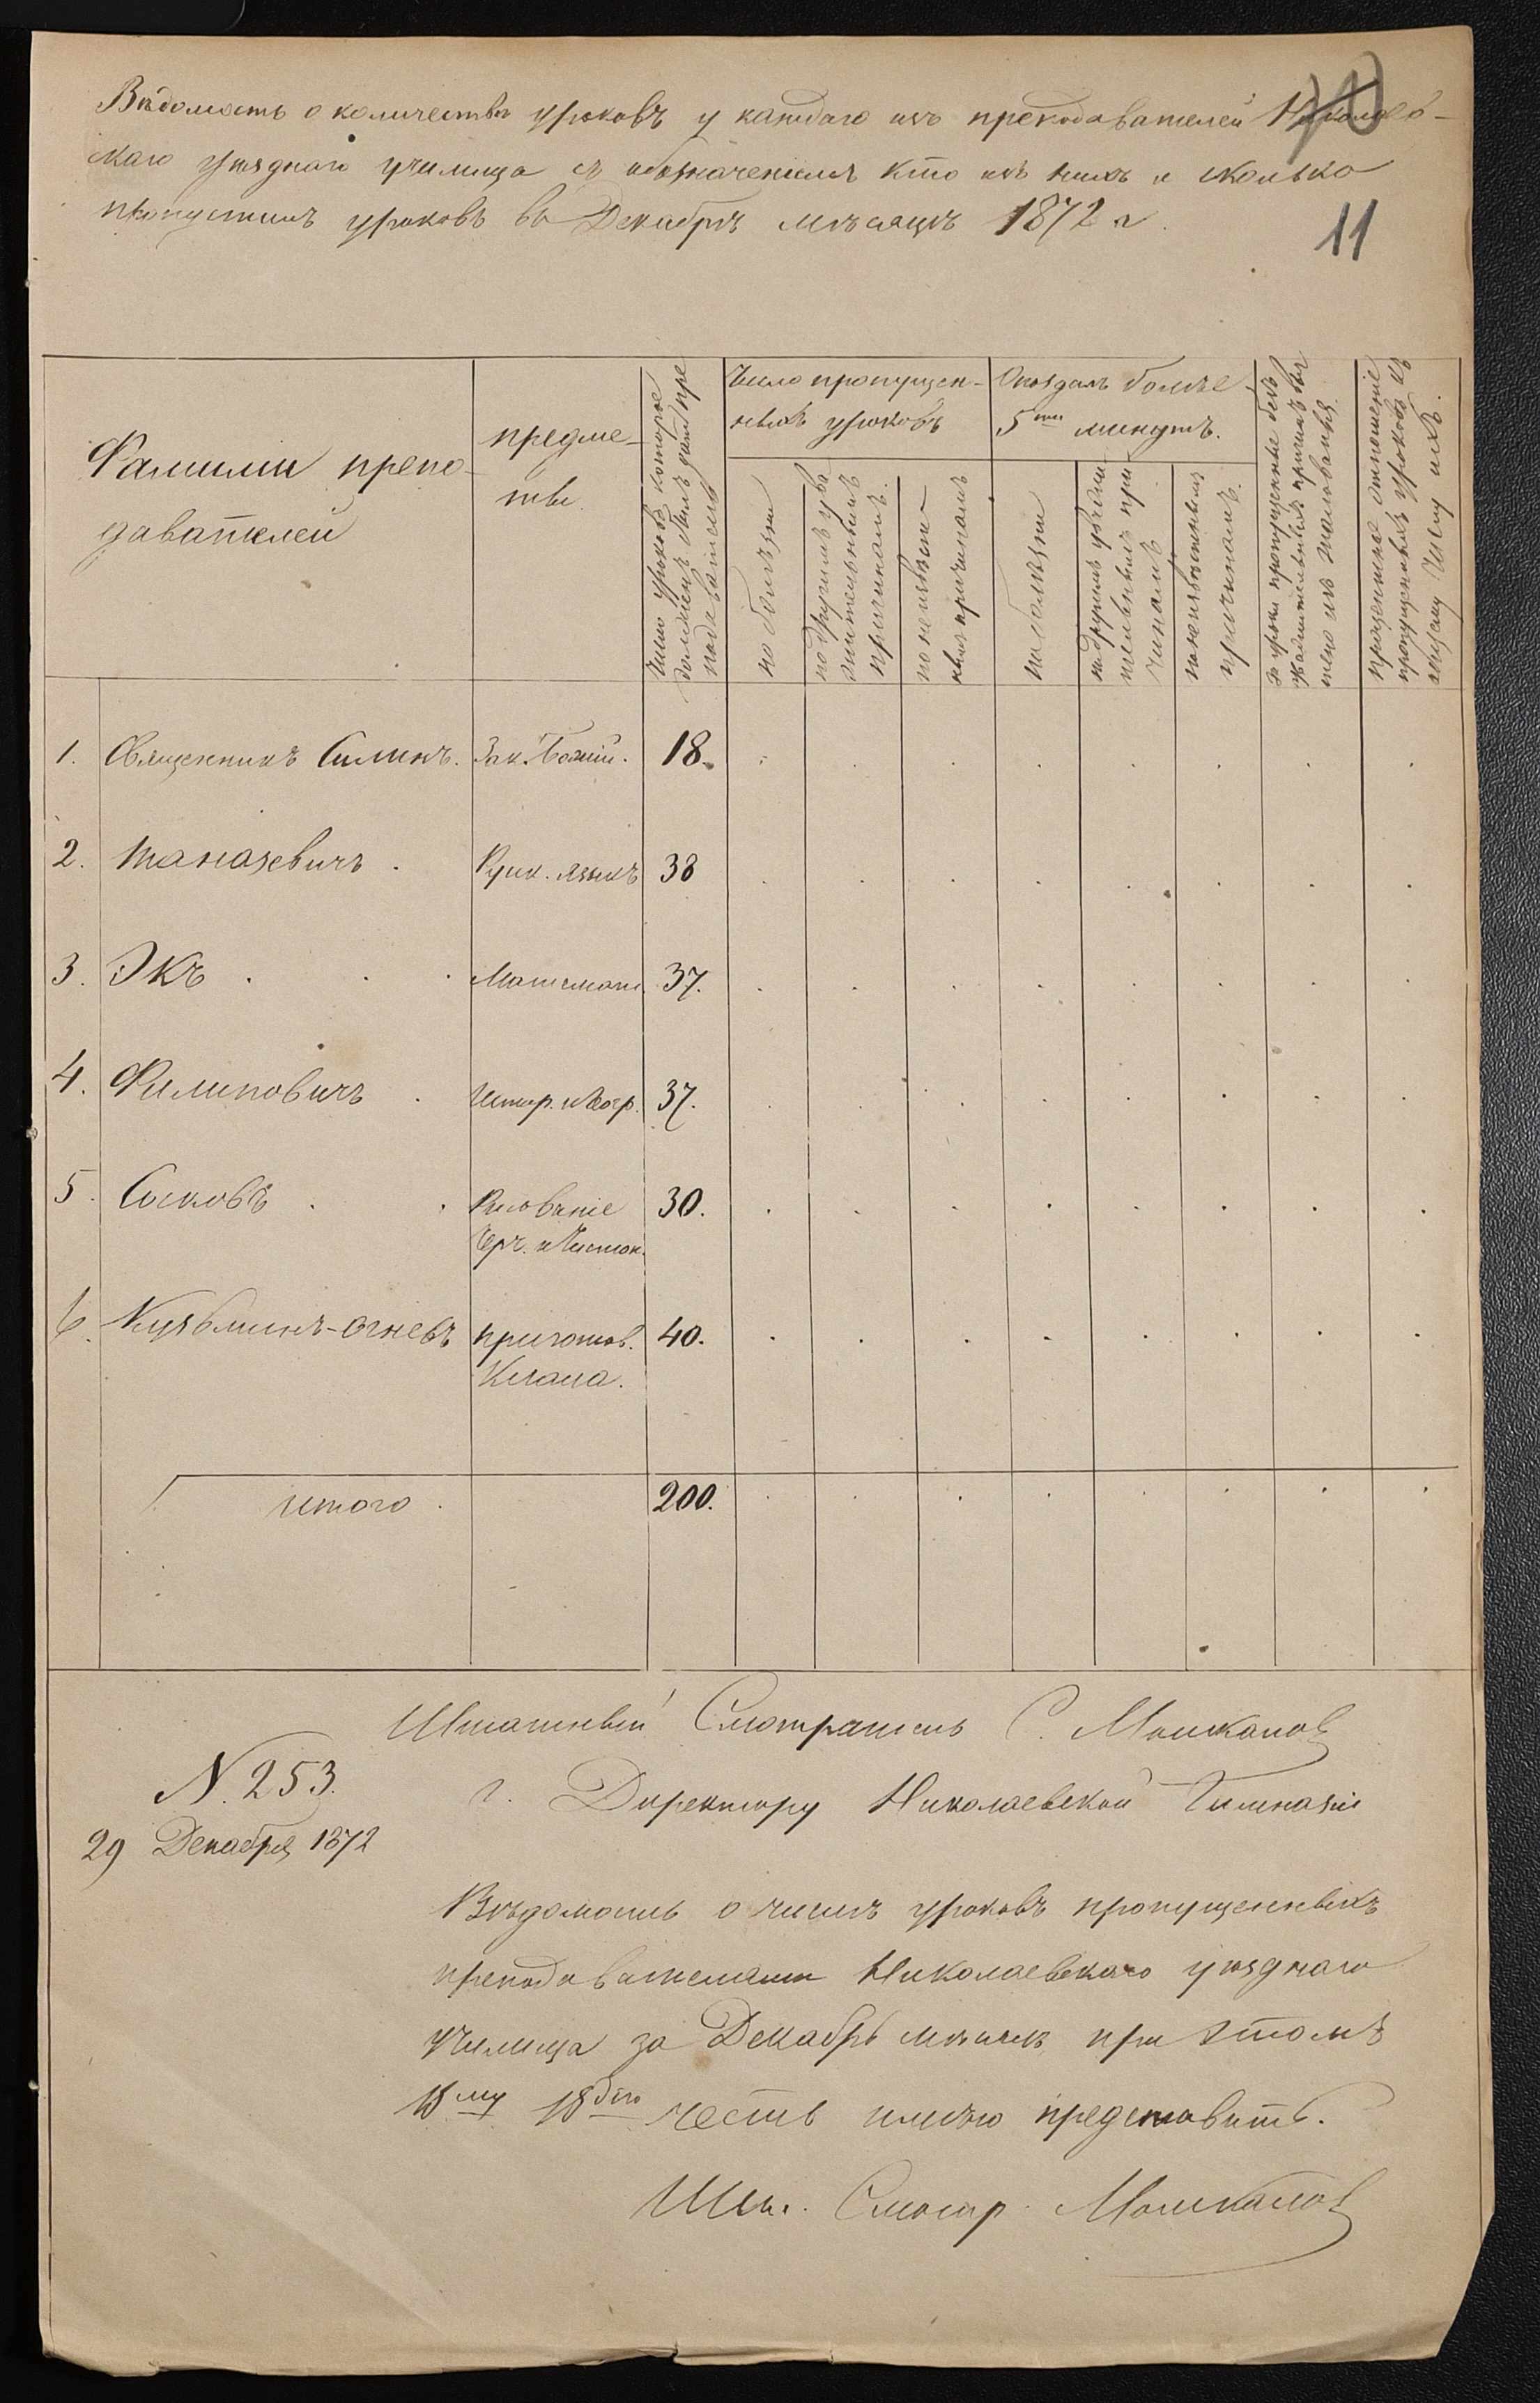 Вѣдомость о количествѣ уроковъ у каждаго изъ преподавателей Николаев-
скаго уѣзднаго училища съ обозначеніемъ кто изъ нихъ и сколько
пропустилъ уроковъ въ Декабрѣ мѣсяцѣ 1872 г.
11
Фамиліи препо-
давателей
предме-
ты.
Число уроковъ которое
долженъ былъ дать пре
подаватель
Число пропущен-
ныхъ уроковъ
по болѣзни
по другимъ ува
жительнымъ
причинамъ.
по неизвѣст-
нымъ причинамъ
Опоздалъ болѣе
5ти минутъ.
по болѣзни
по другимъ уважи
тельнымъ при
чинамъ
по неизвѣстнымъ
причинамъ.
За уроки пропущенные безъ
уважительныхъ причинъ вы
чтено изъ жалованья
процентное отношеніе
пропущенныхъ уроковъ къ
общему числу ихъ.
1. Священникъ Силинъ. Зак. Божій. 18.
2. Танасевичъ. Руск. языкъ 38
3. Экъ Математ. 37.
4. Филиповичъ Истор. и Геогр. 37.
5. Сосковъ Рисованіе 30.
Черч. и Чистоп.
6. Кузьминъ-Огневъ приготов. 40.
Класса.
Итого 200.
Штатный Смотритель С. Мошкалов
N. 253.
29 Декабря 1872
Г. Директору Николаевской Гимназіи
Вѣдомость о числѣ уроковъ пропущенныхъ
преподавателями Николаевскаго уѣзднаго
училища за Декабрь мѣсяцъ при этомъ
честь имѣю представить.
Шт. Смотр. Мошкалов